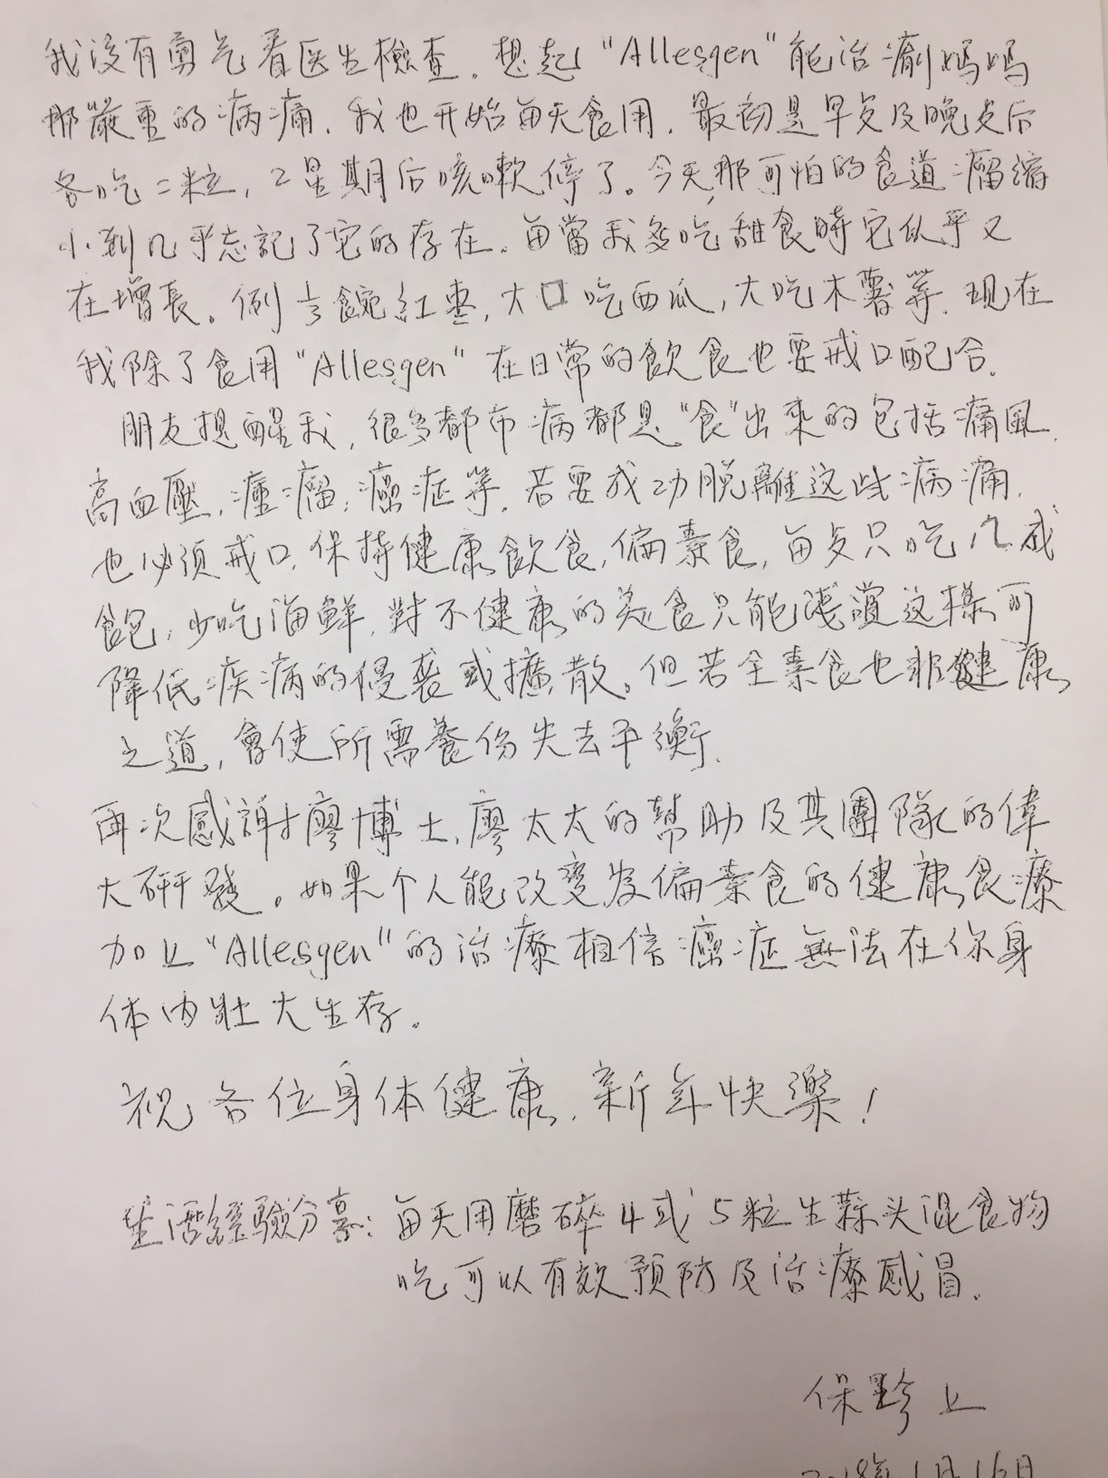 我没有勇气看医生檢查. 想起 "Allesgen" 能治瘉媽媽
那嚴重的病痛. 我也开始每天食用. 最初是早歺及晚歺后
各吃二粒, 2星期后咳嗽停了。今天,那可怕的食道瘤縮
小到几乎忘記了它的存在. 每當我多吃甜食時它似乎又
在增長。例: 紅枣, 大口吃西瓜, 大吃木薯等. 现在
我除了食用 "Allesgen" 在日常的飲食也要戒口配合.
朋友提醒我, 很多都市病都是"食"出来的包括痛風.
高血壓, 瘇瘤, 癌症等. 若要成功脱離这些病痛.
也必须戒口, 保持健康飲食, 偏素食, 每歺只吃八成
飽, 少吃海鮮. 對不健康的美食只能浅嚐这樣可
降低疾病的侵袭或擴散。但若全素食也非健康
之道, 會使所需養份失去平衡.
再次感謝廖博士, 廖太太的幫助及其團隊的偉
大研發。如果个人能改變及偏素食的健康食療
加上 "Allesgen" 的治療相信癌症無法在你身
体内壮大生存。
祝各位身体健康, 新年快樂!
生活經驗分享: 每天用磨碎4或5粒生蒜头混食物
吃可以有效预防及治療感冒.
保 上
2018年1月16日